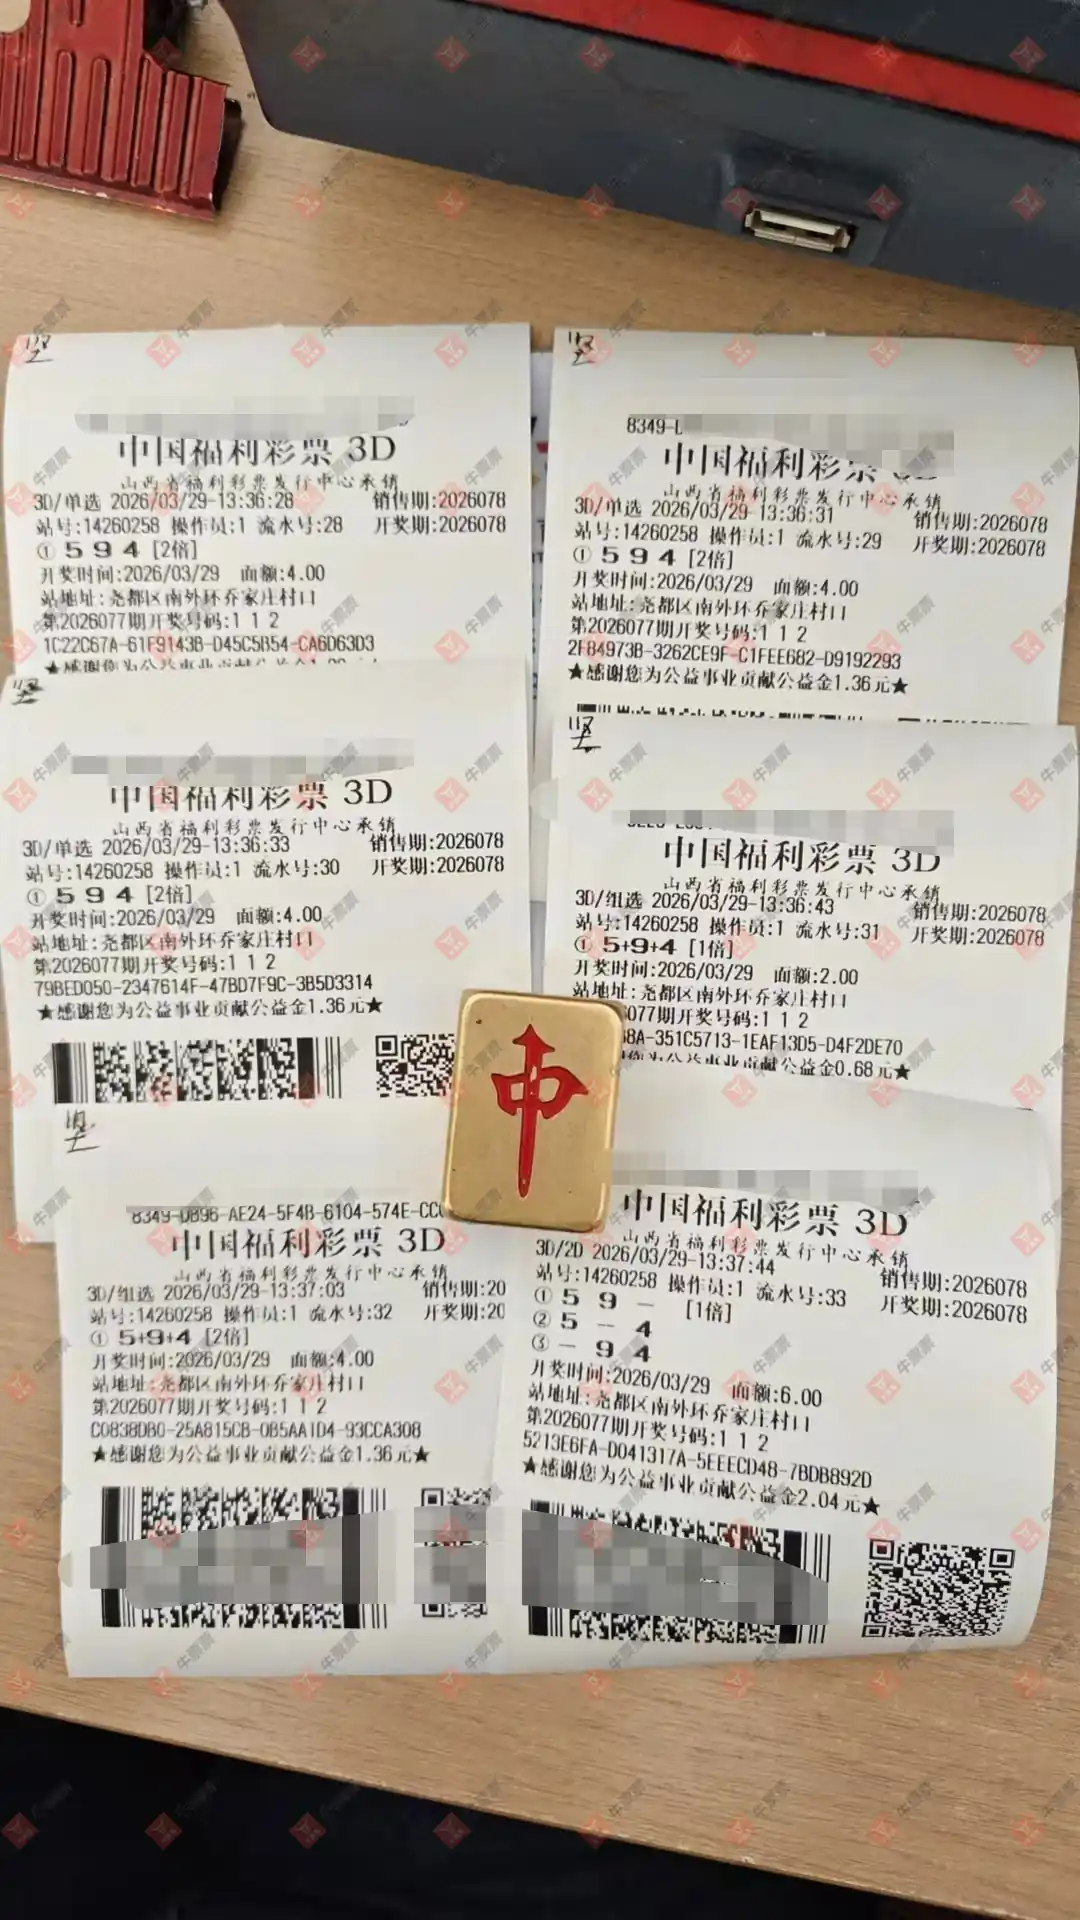 坚
中国福利彩票 3D
山西省福利彩票发行中心承销
3D/单选 2026/03/29-13:36:28 销售期:2026078
站号:14260258 操作员:1 流水号:28 开奖期:2026078
① 5 9 4 [2倍]
开奖时间:2026/03/29 面额:4.00
站地址:尧都区南外环乔家庄村口
第2026077期开奖号码:1 1 2
1C22C67A-61F9143B-D45C5B54-CA6D63D3
★感谢您为公益事业贡献公益金
坚
8349-
中国福利彩票
山西省福利彩票发行中心承销
3D/单选 2026/03/29-13:36:31 销售期:2026078
站号:14260258 操作员:1 流水号:29 开奖期:2026078
① 5 9 4 [2倍]
开奖时间:2026/03/29 面额:4.00
站地址:尧都区南外环乔家庄村口
第2026077期开奖号码:1 1 2
2F84973B-3262CE9F-C1FEE682-D9192293
★感谢您为公益事业贡献公益金1.36元★
坚
中国福利彩票 3D
山西省福利彩票发行中心承销
3D/单选 2026/03/29-13:36:33 销售期:2026078
站号:14260258 操作员:1 流水号:30 开奖期:2026078
① 5 9 4 [2倍]
开奖时间:2026/03/29 面额:4.00
站地址:尧都区南外环乔家庄村口
第2026077期开奖号码:1 1 2
79BED050-2347614F-47BD7F9C-3B5D3314
★感谢您为公益事业贡献公益金1.36元★
坚
中国福利彩票 3D
山西省福利彩票发行中心承销
3D/组选 2026/03/29-13:36:43 销售期:2026078
站号:14260258 操作员:1 流水号:31 开奖期:2026078
① 5+9+4 [1倍]
开奖时间:2026/03/29 面额:2.00
站地址:尧都区南外环乔家庄村口
077期开奖号码:1 1 2
8A-351C5713-1EAF13D5-D4F2DE70
您为公益事业贡献公益金0.68元★
中
坚
8349-DB96-AE24-5F4B-6104-574E-CC
中国福利彩票 3D
山西省福利彩票发行中心承销
3D/组选 2026/03/29-13:37:03 销售期:20
站号:14260258 操作员:1 流水号:32 开奖期:20
① 5+9+4 [2倍]
开奖时间:2026/03/29 面额:4.00
站地址:尧都区南外环乔家庄村口
第2026077期开奖号码:1 1 2
C0838DB0-25A815CB-0B5AA1D4-93CCA308
★感谢您为公益事业贡献公益金1.36元★
中国福利彩票 3D
山西省福利彩票发行中心承销
3D/2D 2026/03/29-13:37:44 销售期:2026078
站号:14260258 操作员:1 流水号:33 开奖期:2026078
① 5 9 － [1倍]
② 5 － 4
③ － 9 4
开奖时间:2026/03/29 面额:6.00
站地址:尧都区南外环乔家庄村口
第2026077期开奖号码:1 1 2
5213E6FA-D041317A-5EEECD48-7BDB892D
★感谢您为公益事业贡献公益金2.04元★
牛票票